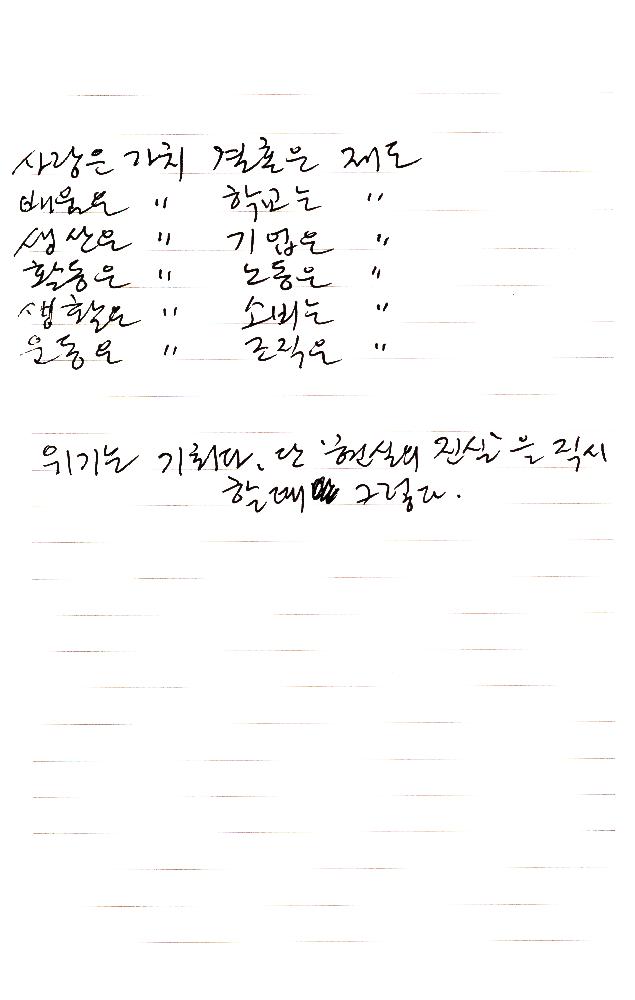 사랑은 가치 결혼은 제도
배움은 〃 학교는 〃
생산은 〃 기업은 〃
활동은 〃 노동은 〃
생활은 〃 소비는 〃
운동은 〃 조직은 〃
위기는 기회다. 단 '현실의 진실'을 직시
할 때 그렇다.